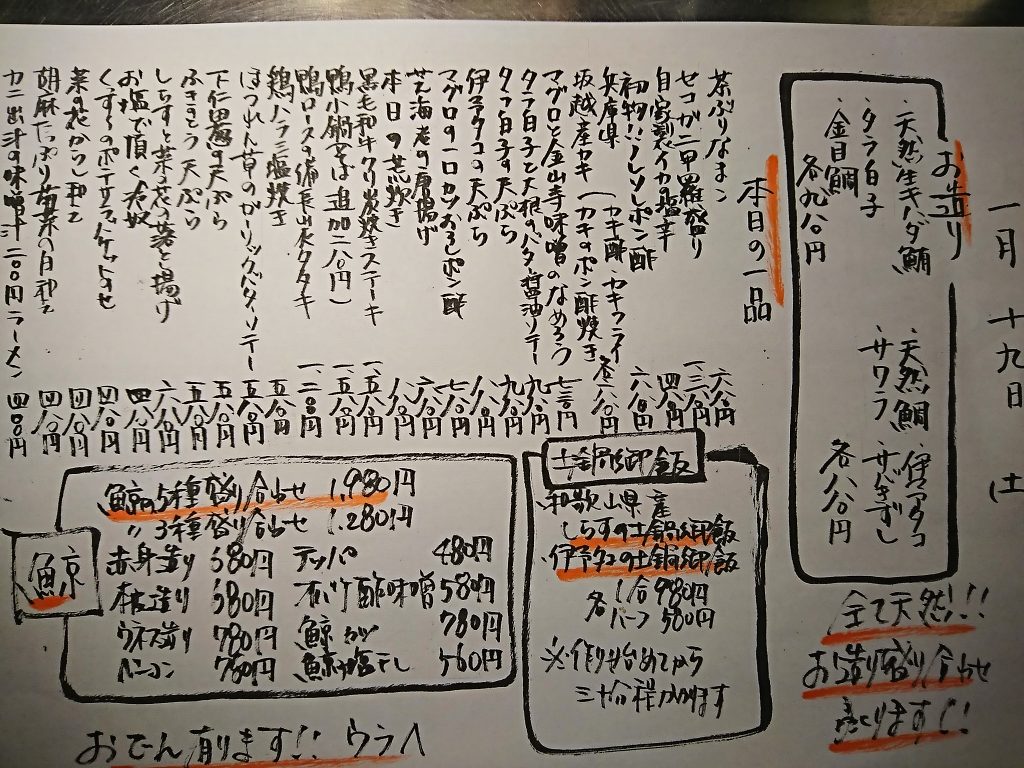 一月十九日 土
お造り
・天然生キバダ鮪
・タラ白子
・金目鯛
各九八〇円
・天然鯛
・サワラ
・サザキざし
各八八〇円
全て天然!!
お造り盛り合せ
有ります!!
本日の一品
茶ぶりなまこ 六八〇円
セコガニ甲羅盛り 一三八〇円
自家製イカの塩辛 四八〇円
初物!!ノレソレポン酢 六八〇円
兵庫県
坂越産カキ(カキ酢・カキフライ・カキのポン酢焼き 各八八〇円
マグロと金山寺味噌のなめろう 七八〇円
タラ白子と大根のバター醤油ソテー 九八〇円
タラ白子の天ぷら 九八〇円
伊予ダコの天ぷら 八八〇円
マグロの一口カツおろしポン酢 七八〇円
芝海老の唐揚げ 六八〇円
本日の荒炊き 八八〇円
黒毛和牛クリ炭焼きステーキ 一五八〇円
鴨小鍋(そば追加二八〇円) 一五八〇円
鴨ロースの備長山衣タタキ 一二八〇円
鶏ハラミ塩焼き 五八〇円
ほうれん草のガーリックバターソテー 五八〇円
下仁田葱の天ぷら 五八〇円
ふきのとう天ぷら 五八〇円
しらすと菜の花の落とし揚げ 六八〇円
お塩で頂く冷奴 四八〇円
くずし豆のポテサラ バケットのせ 四八〇円
菜の花からし和え 四八〇円
胡麻たっぷり菊菜の月和え 四八〇円
カニ出汁の味噌汁二〇〇円ラーメン 四〇〇円
土鍋御飯
和歌山県産
しらすの土鍋御飯
伊予ダコの土鍋御飯
各 1合980円
ハーフ580円
※作り始めてから
三十分程かかります
鯨
鯨の5種盛り合わせ 1,980円
〃3種盛り合わせ 1,280円
赤身造り 580円
本皮造り 580円
ウネス造り 780円
ベーコン 780円
テッパ 480円
オバケ酢味噌 580円
鯨カツ 780円
鯨の塩干し 560円
おでん有ります!! ウラへ